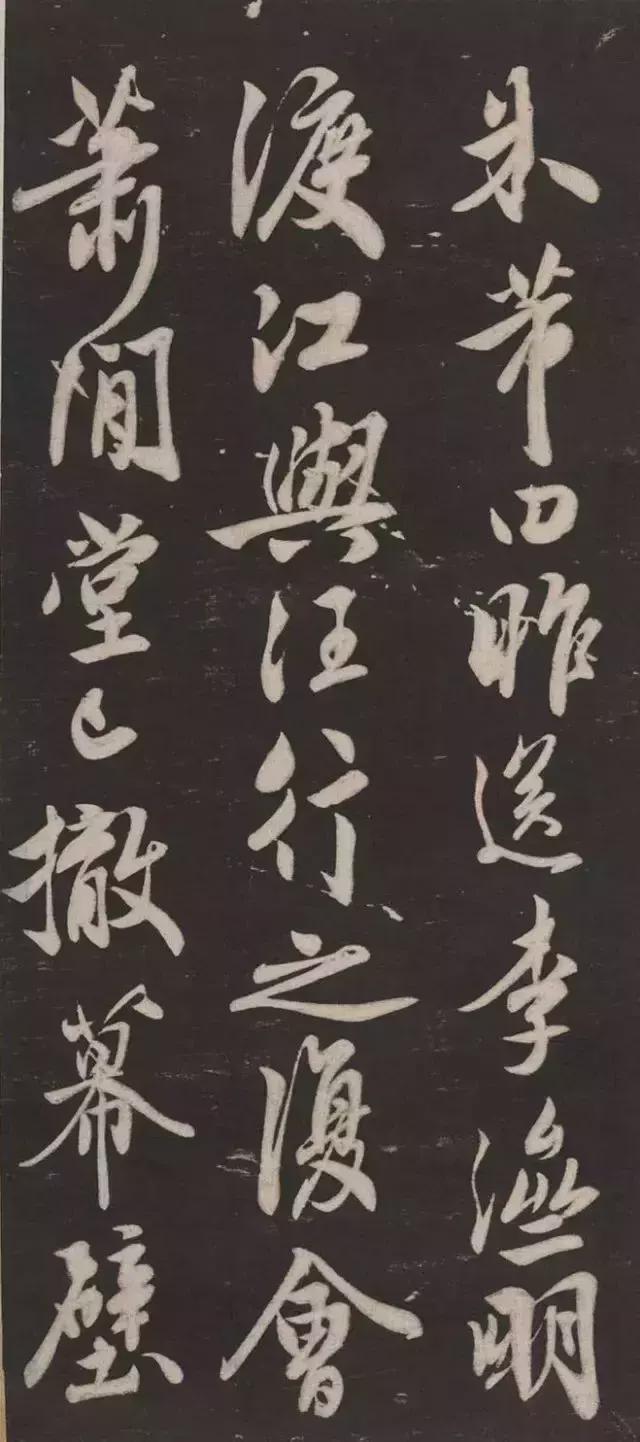 米芾曰昨送李明
渡江與汪行之復會
蕭閒堂已撤幕壁